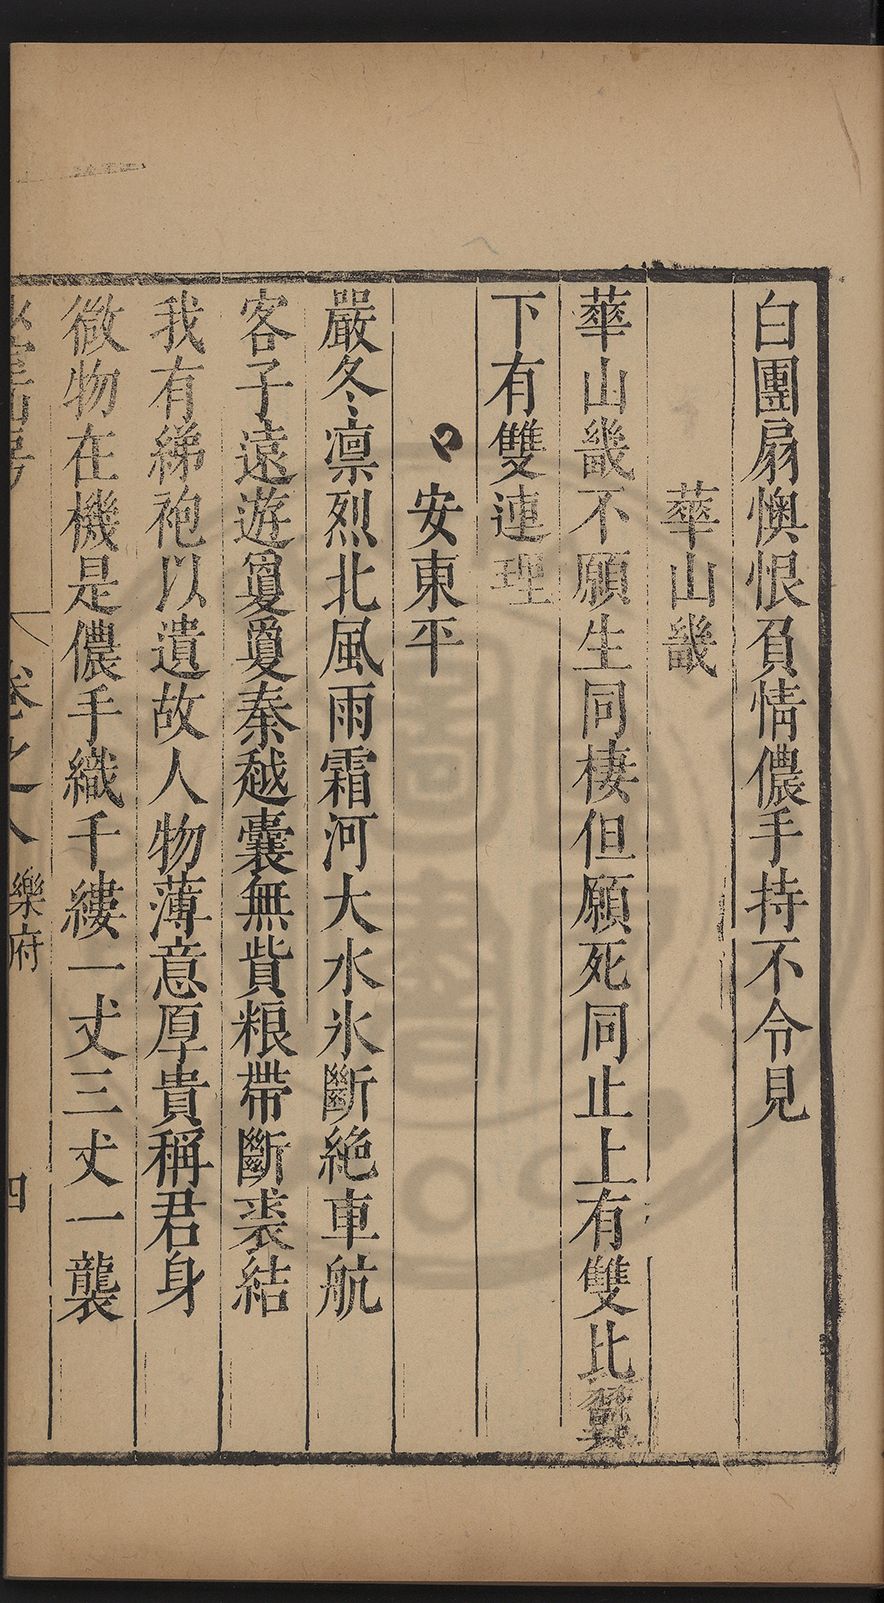 白團扇懊恨負情儂手持不令見
華山畿
華山畿不願生同棲但願死同止上有雙比翼
下有雙連理
安東平
嚴冬凛烈北風雨霜河大水氷斷絶車航
客子遠遊敻敻秦越囊無貲粮帶斷裘結
我有綈袍以遺故人物薄意厚貴稱君身
微物在機是儂手織千縷一丈三丈一襲
卷之八 樂府 四